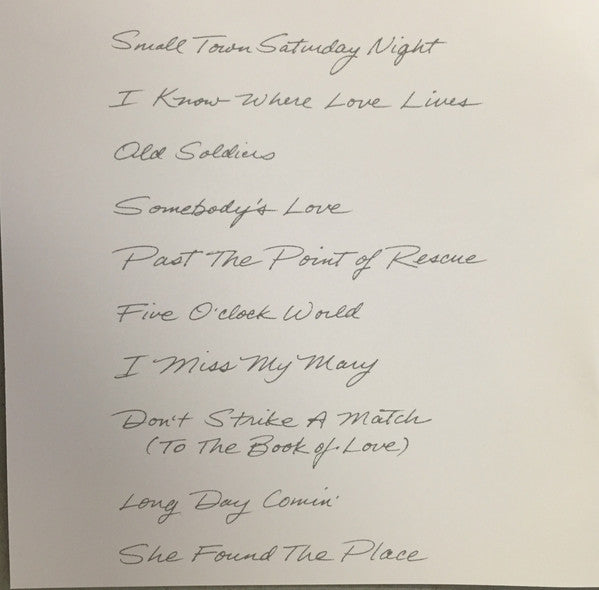 Small Town Saturday Night
I Know Where Love Lives
Old Soldiers
Somebody's Love
Past The Point of Rescue
Five O'clock World
I Miss My Mary
Don't Strike A Match
(To The Book of Love)
Long Day Comin'
She Found The Place